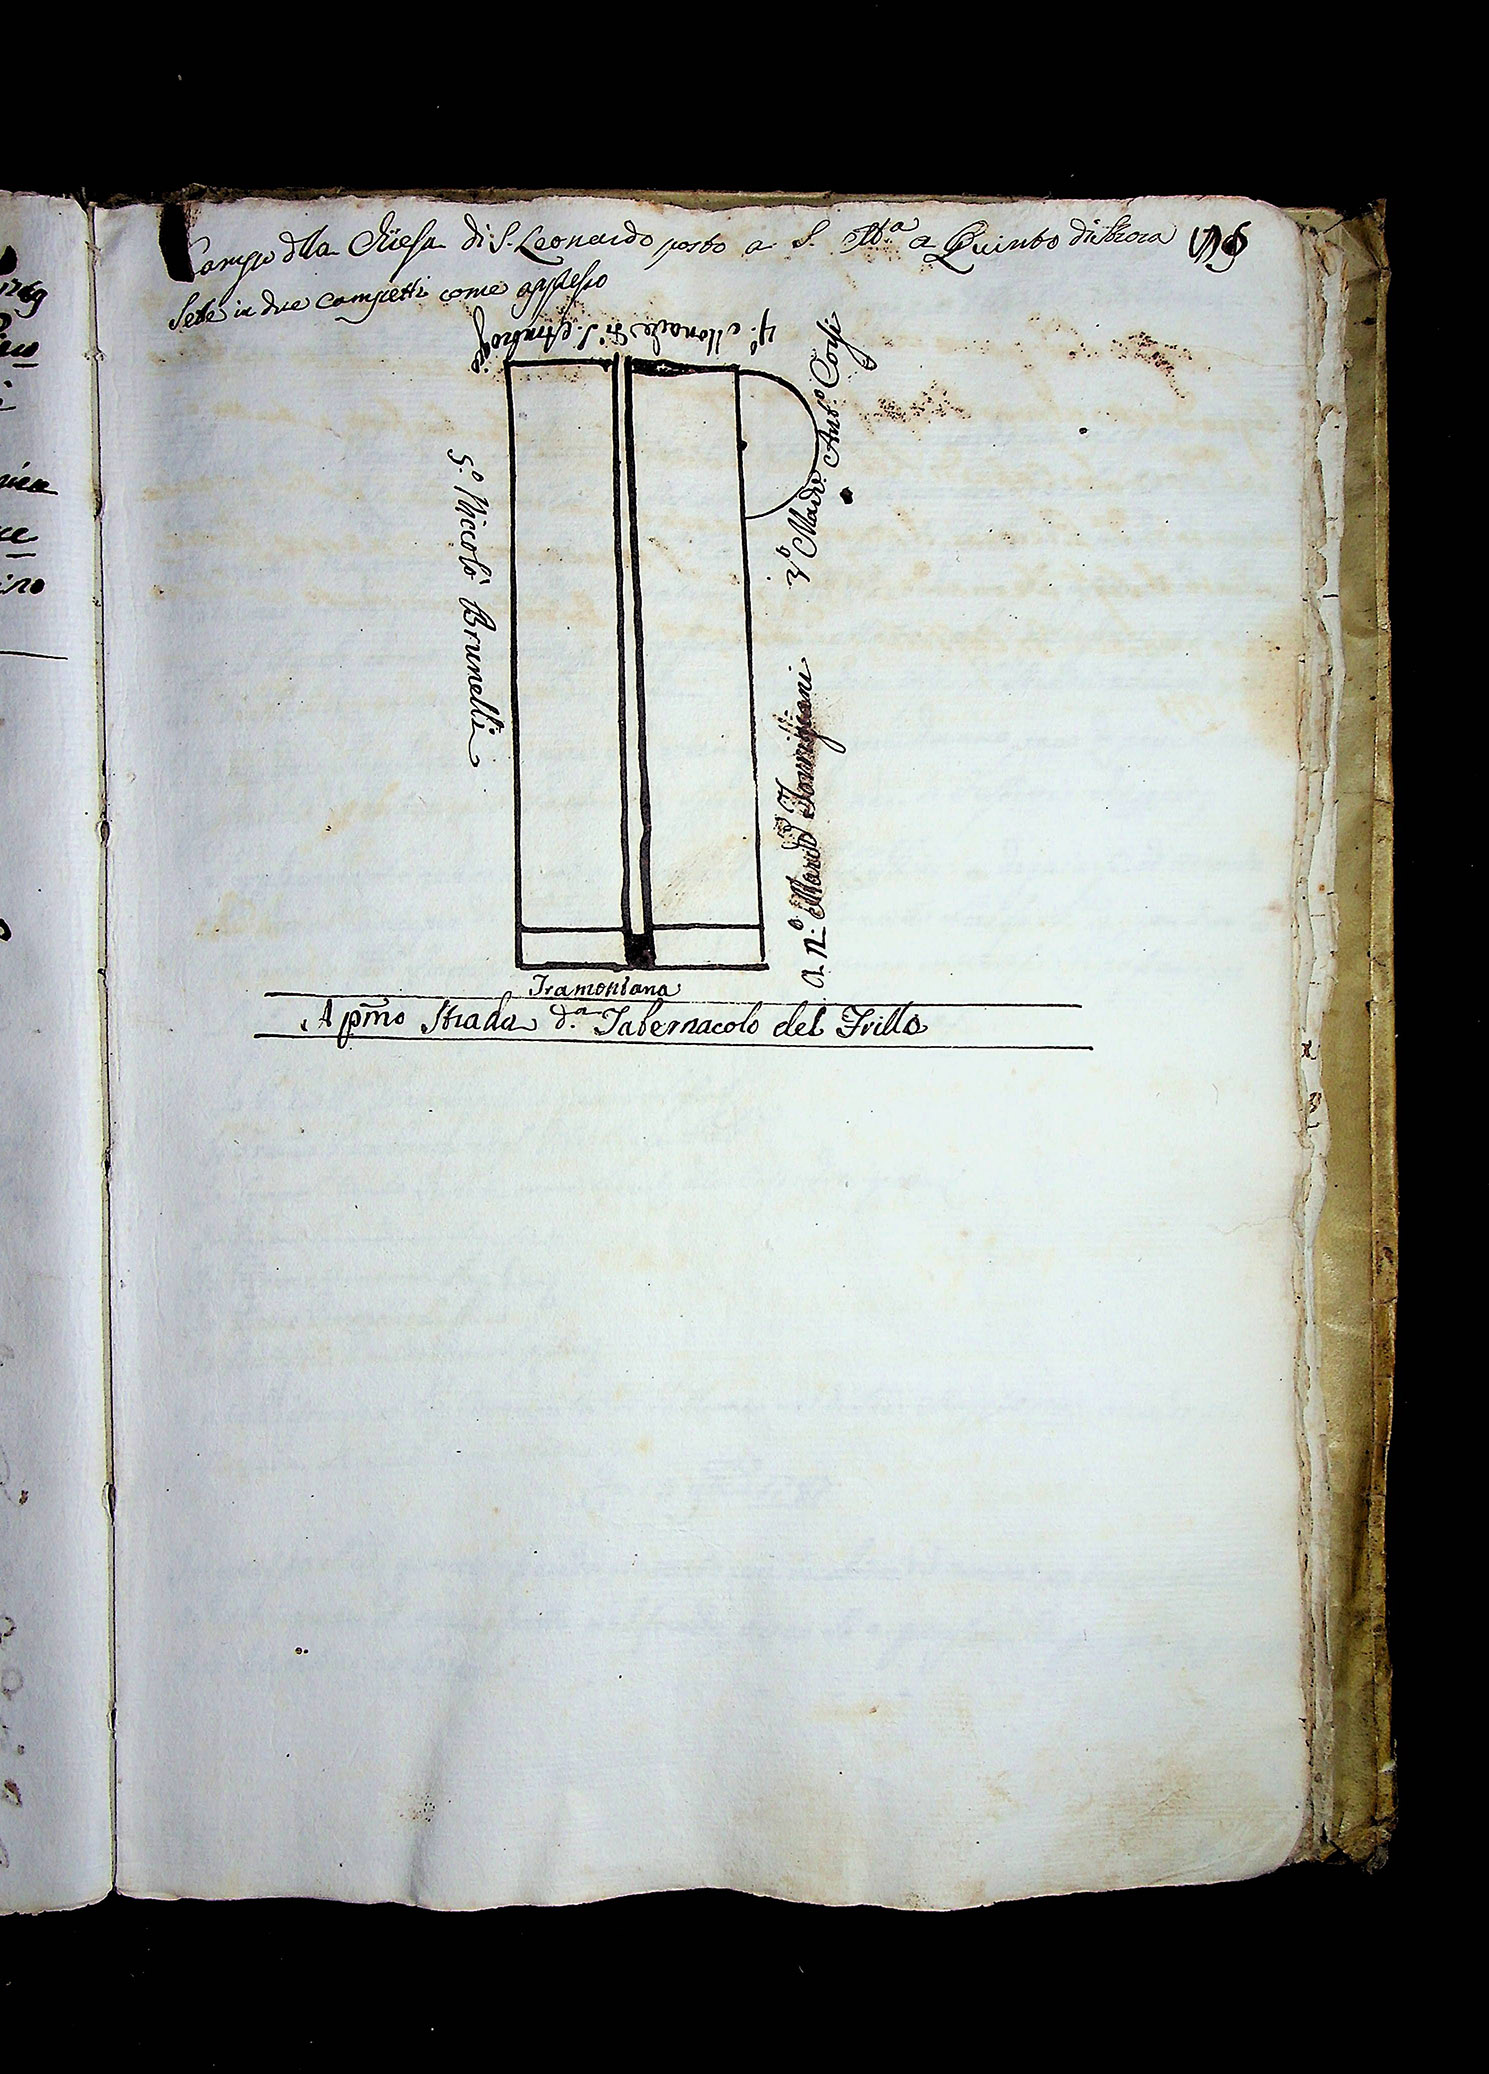 Campo dlla Chiesa di S. Leonardo posto a S. M.ª a Quinto di sbrora
Sebe in due campetti come appresso
4.º Monache di S. Ambrogio
3º March. Ant.º Corsi
5.º Niccolò Brunelli
a n.º March
Tramontana
A pmo Strada d.ª Tabernacolo del Frillo
1769